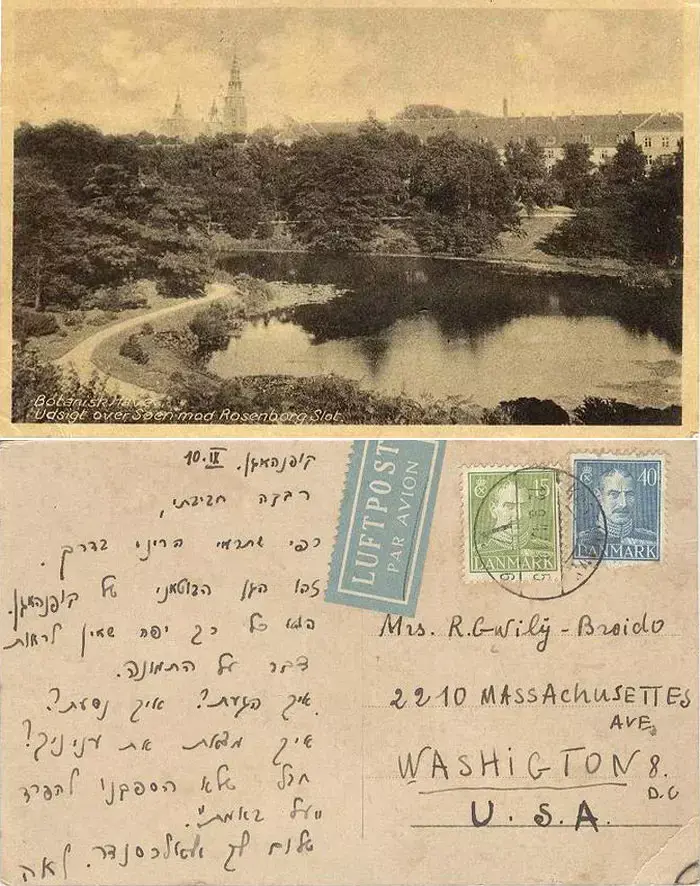 Botanisk Have.
Udsigt over Søen mod Rosenborg Slot.
קופנהאגן. 10.IX
רבקה חביבתי,
כפי שתראי הריני בדרך.
זהו הגן הבוטאני של קופנהאגן.
הוא כל כך יפה שאין לראות
דבר על התמונה.
איך הגעת? איך נסעת?
איך מצאת את עניניך?
חבל שלא הספקנו להפרד
"על באמת".
שלום לך ולאלכסנדר. לאה
LUFTPOST
PAR AVION
15
DANMARK
40
DANMARK
Mrs. R. Gwily - Broido
2210 MASSACHUSETTES
AVE.
WASHIGTON 8.
D.C
U.S.A.